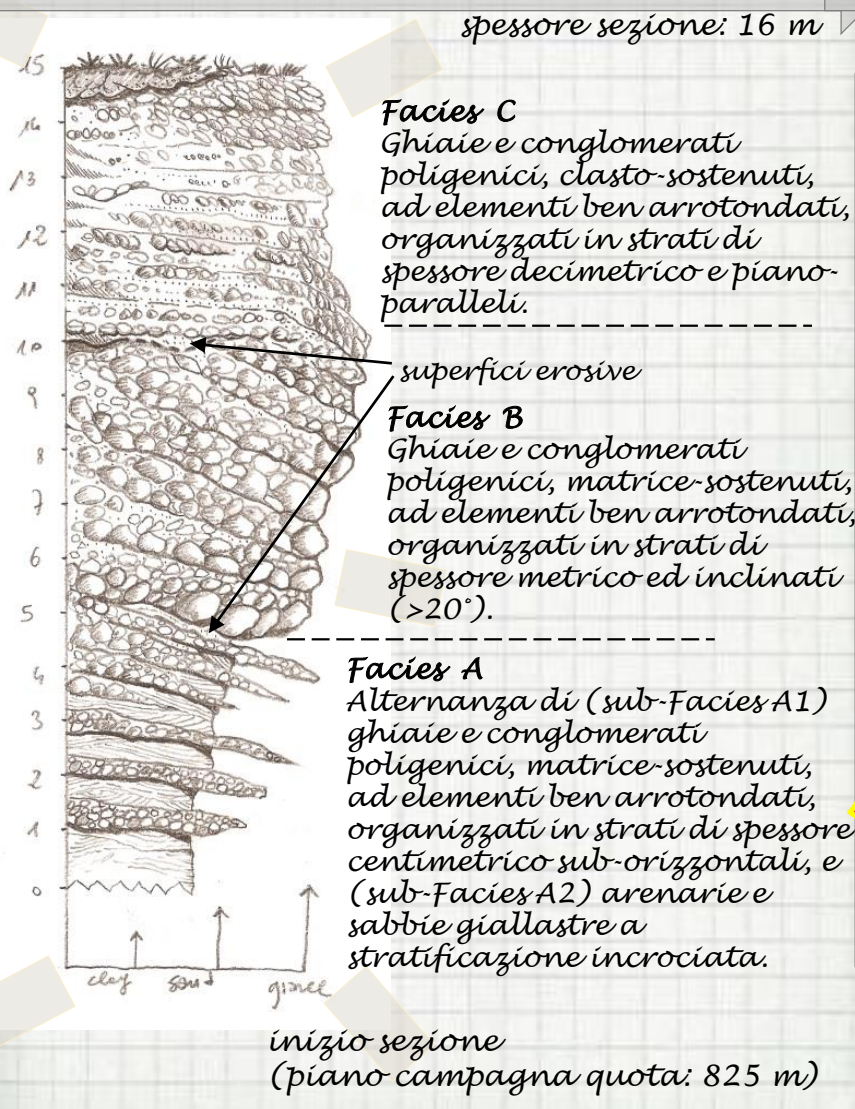 spessore sezione: 16 m
15
14
13
12
11
10
9
8
7
6
5
4
3
2
1
0
clay sand
Facies C
Ghiaie e conglomerati
poligenici, clasto-sostenuti,
ad elementi ben arrotondati,
organizzati in strati di
spessore decimetrico e piano-
paralleli.
superfici erosive
Facies B
Ghiaie e conglomerati
poligenici, matrice-sostenuti,
ad elementi ben arrotondati,
organizzati in strati di
spessore metrico ed inclinati
(>20°).
Facies A
Alternanza di (sub-Facies A1)
ghiaie e conglomerati
poligenici, matrice-sostenuti,
ad elementi ben arrotondati,
organizzati in strati di spessore
centimetrico sub-orizzontali, e
(sub-Facies A2) arenarie e
sabbie giallastre a
stratificazione incrociata.
inizio sezione
(piano campagna quota: 825 m)